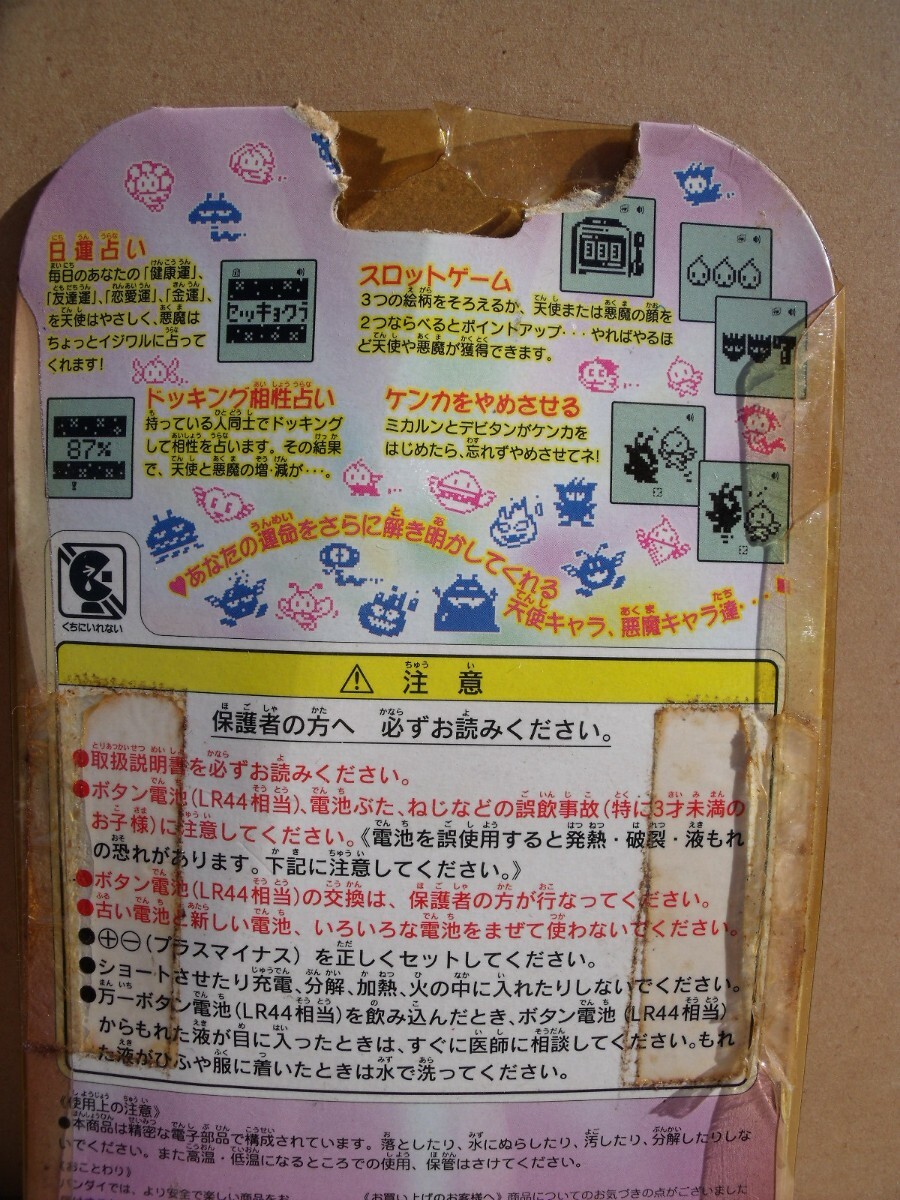 日運占い
毎日のあなたの「健康運」、
「友達運」、「恋愛運」、「金運」、
を天使はやさしく、悪魔は
ちょっとイジワルに占って
くれます!
セッキョクラ
スロットゲーム
3つの絵柄をそろえるか、天使または悪魔の顔を
2つならべるとポイントアップ・・・やればやるほ
ど天使や悪魔が獲得できます。
ドッキング相性占い
持っている人同士でドッキング
して相性を占います。その結果
で、天使と悪魔の増・減が・・・。
87%
ケンカをやめさせる
ミカルンとデビタンがケンカを
はじめたら、忘れずやめさせてネ!
♥あなたの運命をさらに解き明かしてくれる
天使キャラ、悪魔キャラ達・・・
くちにいれない
⚠ 注意
保護者の方へ 必ずお読みください。
●取扱説明書を必ずお読みください。
●ボタン電池(LR44相当)、電池ぶた、ねじなどの誤飲事故(特に3才未満の
お子様)に注意してください。《電池を誤使用すると発熱・破裂・液もれ
の恐れがあります。下記に注意してください。》
●ボタン電池(LR44相当)の交換は、保護者の方が行なってください。
●古い電池と新しい電池、いろいろな電池をまぜて使わないでください。
●⊕⊖(プラスマイナス)を正しくセットしてください。
●ショートさせたり充電、分解、加熱、火の中に入れたりしないでください。
●万一ボタン電池(LR44相当)を飲み込んだとき、ボタン電池(LR44相当)
からもれた液が目に入ったときは、すぐに医師に相談してください。もれ
た液がひふや服に着いたときは水で洗ってください。
《使用上の注意》
●本商品は精密な電子部品で構成されています。落としたり、水にぬらしたり、汚したり、分解したりしな
いでください。また高温・低温になるところでの使用、保管はさけてください。
《おことわり》
バンダイでは、より安全で楽しい商品をお
《お買い上げのお客様へ》商品についてのお気づきの点がございました